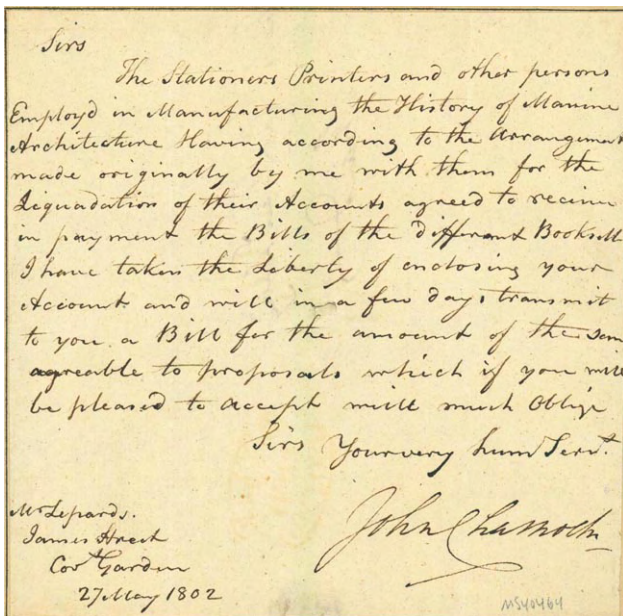 Sirs
The Stationers Printers and other persons
Employ'd in Manufacturing the History of Marine
Architecture Having according to the Arrangement
made originally by me with them for the
Liquadation of their Accounts agreed to receive
in payment the Bills of the different Booksell
I have taken the Liberty of enclosing your
Account and will in a few days transmit
to you a Bill for the amount of the Sam
agreable to proposals which if you will
be pleased to accept will much Oblige
Sirs Your very hum Servt.
John Charnock
Mr Lepards.
James Street
Covt Garden
27 May 1802
MS40464